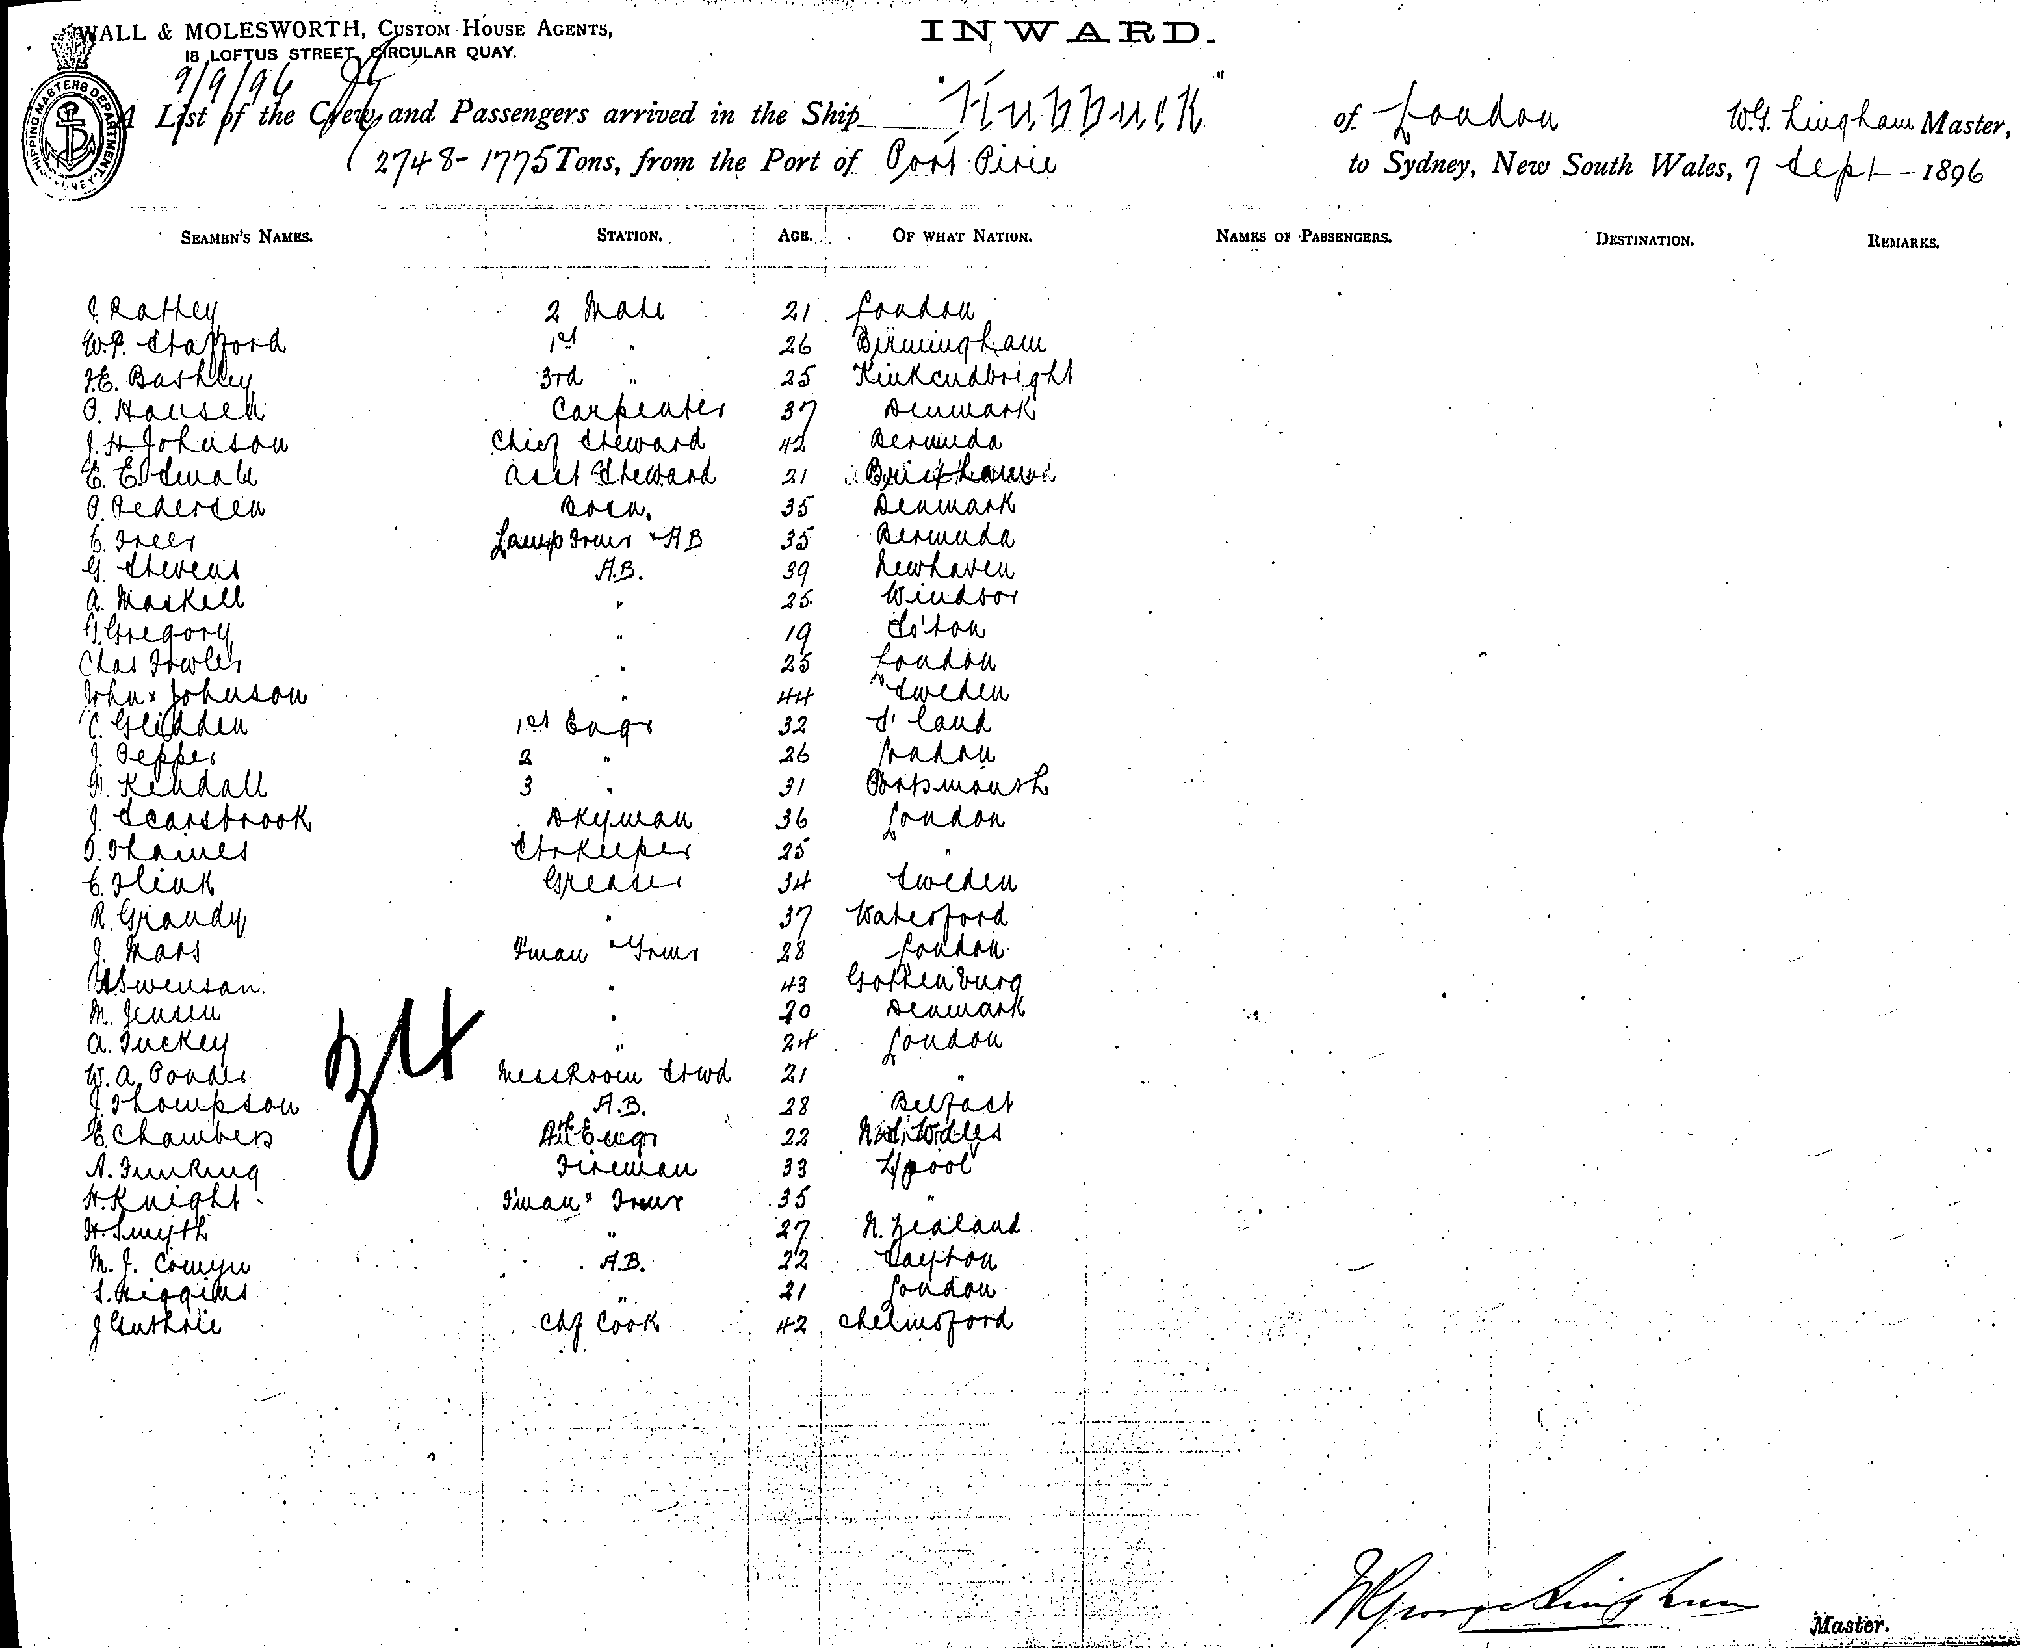 WALL & MOLESWORTH, CUSTOM HOUSE AGENTS,
18 LOFTUS STREET, CIRCULAR QUAY.
INWARD.
9/9/96
SHIPPING MASTERS DEPARTMENT SYDNEY
A List of the Crew and Passengers arrived in the Ship "Hubbuck" of London W.G. Lingham Master,
2748 - 1775 Tons, from the Port of Port Pirie to Sydney, New South Wales, 7 Sept - 1896
SEAMEN'S NAMES. STATION. AGE. OF WHAT NATION. NAMES OF PASSENGERS. DESTINATION. REMARKS.
J. Rattey 2 Mate 21 London
W.P. Stafford 1st " 26 Birmingham
H.E. Bashley 3rd " 25 Kirkcudbright
P. Hansen Carpenter 37 Denmark
J. H. Johnson Chief Steward 42 Bermuda
E. E. Smale Asst Steward 21
P. Pedersen Bosn. 35 Denmark
C. Freer Lamp Trmr & AB 35 Bermuda
G. Stevens A.B. 39 Newhaven
A. Maskell " 25 Windsor
G. Gregory " 19 S'ton
Chas Fowler " 25 London
John Johnson " 44 Sweden
C. Glidden 1st Engr 32 S'land
J. Pepper 2 " 26 London
H. Kendall 3 " 31 Portsmouth
J. Scarsbrook Dkyman 36 London
T. Thaines Storkeeper 25 "
C. Flink Greaser 34 Sweden
R. Grandy " 37 Waterford
J. Mars F'man & Trmr 28 London
Swenson " 43 Gothenburg
M. Jensen " 20 Denmark
A. Tuckey " 24 London
W. A. Ponder Messroom Stwd 21 "
J. Thompson A.B. 28 Belfast
E. Chambers 4th Engr 22
A. Funking Fireman 33 L'pool
H. Knight F'man & Trmr 35 "
H. Smyth " 27 N. Zealand
M. J. Comyn A.B. 22 Layton
S. Higgins " 21 London
J Guthrie Chf Cook 42 Chelmsford
34
W George Lingham
Master.